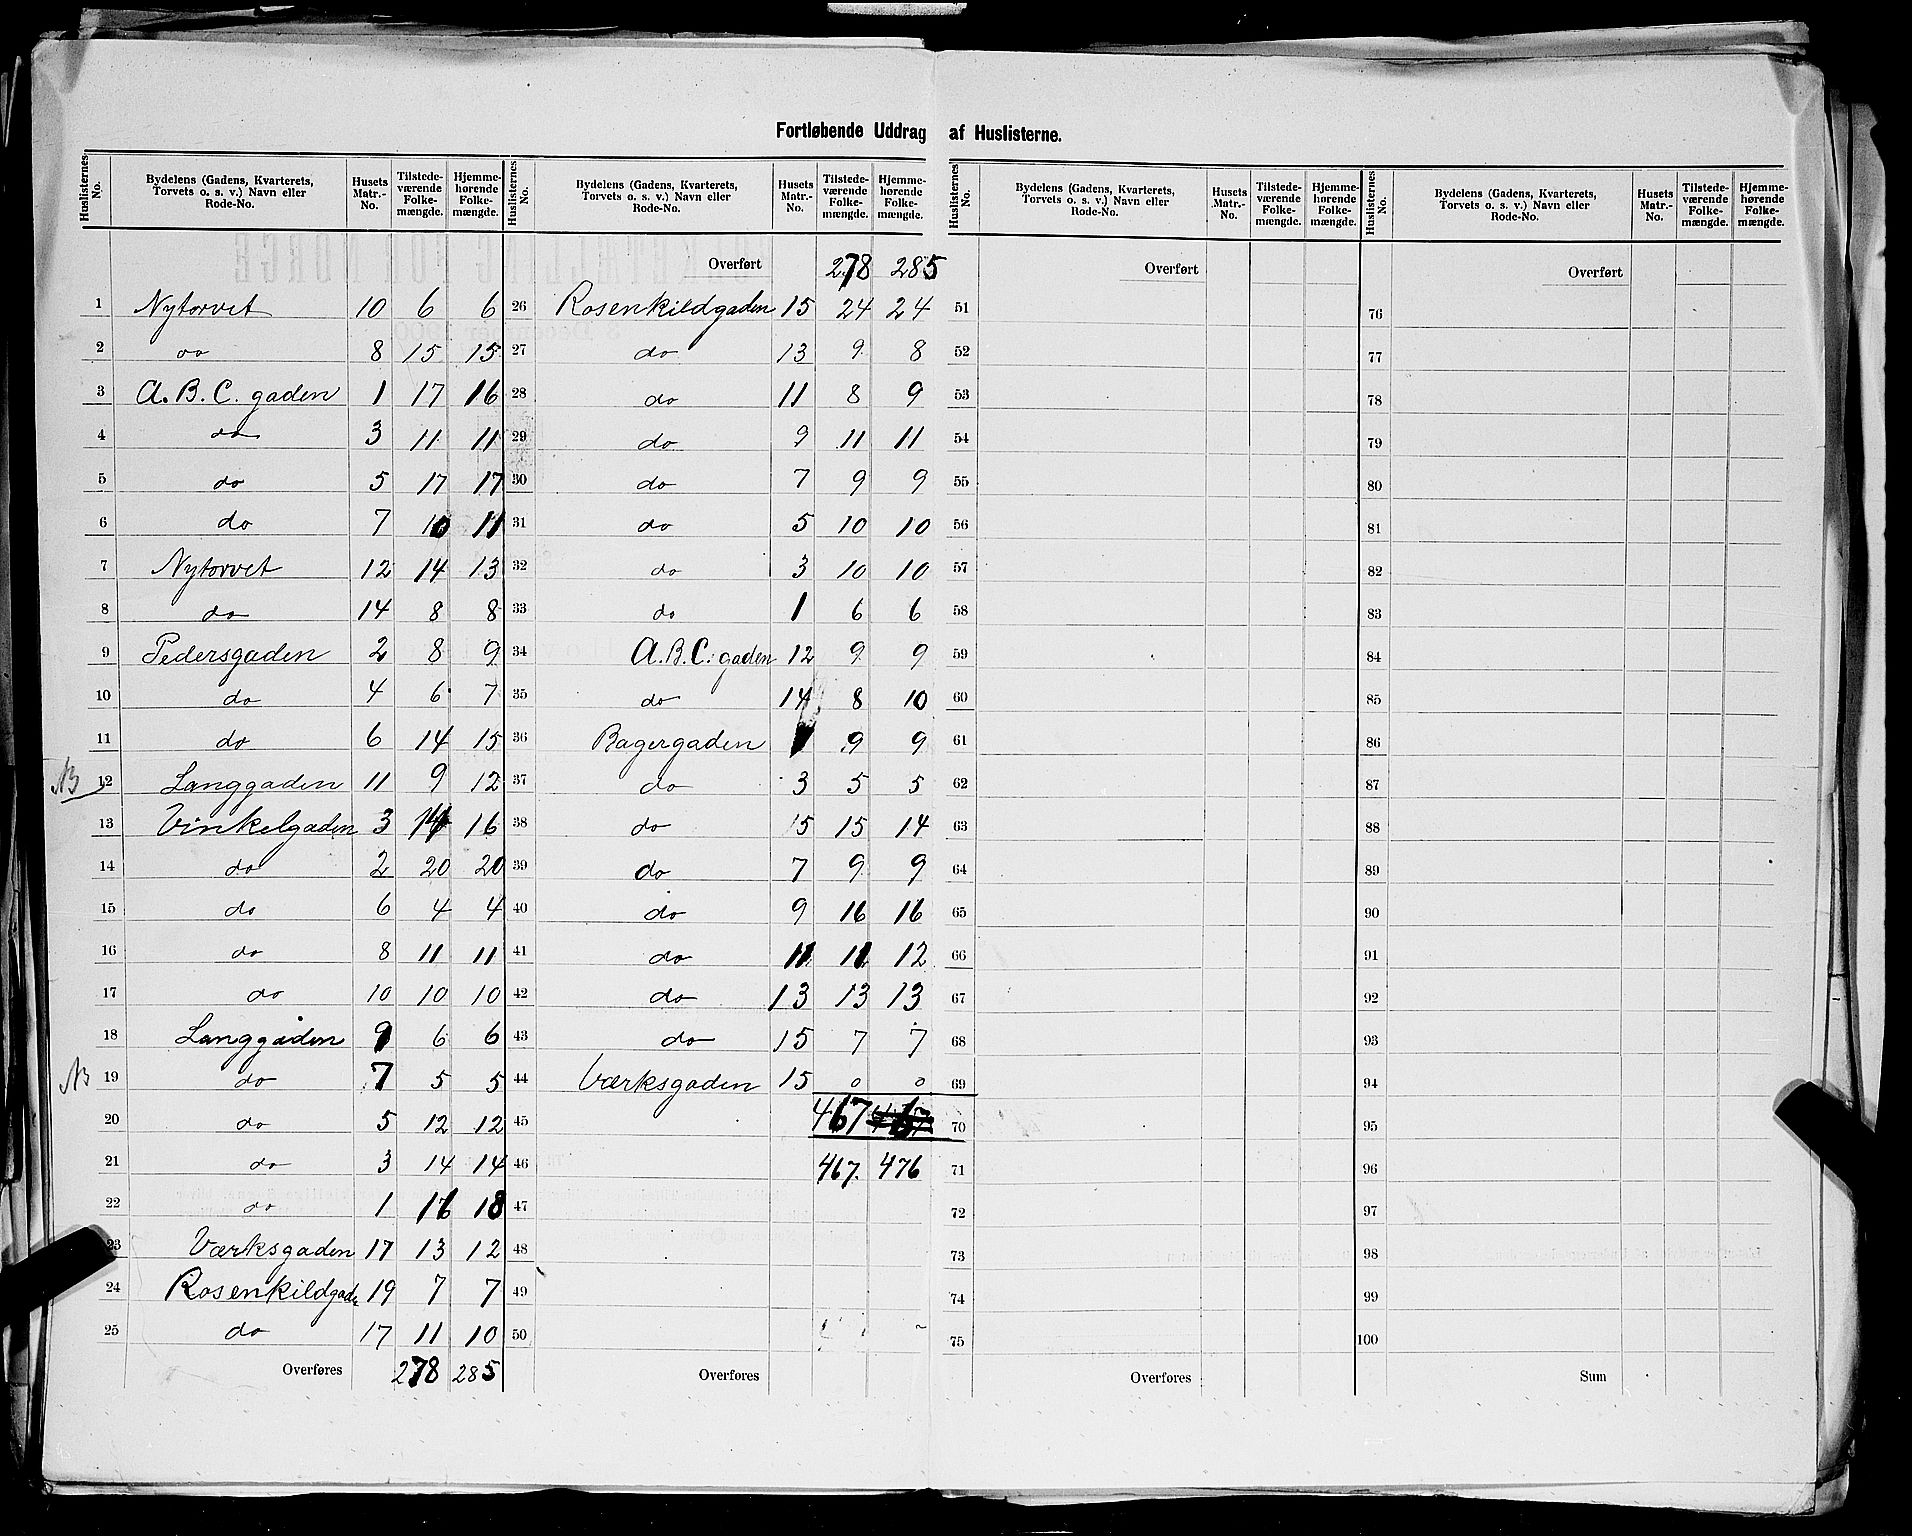 Fortløbende Uddrag af Huslisterne.
Huslisternes No. | Bydelens (Gadens, Kvarterets, Torvets o. s. v.) Navn eller Rode-No. | Husets Matr.-No. | Tilstedeværende Folkemængde. | Hjemmehørende Folkemængde.
1 Nytorvet 10 6 6
2 do 8 15 15
3 A. B. C. gaden 1 17 16
4 do 3 11 11
5 do 5 17 17
6 do 7 10 11
7 Nytorvet 12 14 13
8 do 14 8 8
9 Pedersgaden 2 8 9
10 do 4 6 7
11 do 6 14 15
NB 12 Langgaden 11 9 12
13 Vinkelgaden 3 14 16
14 do 2 20 20
15 do 6 4 4
16 do 8 11 11
17 do 10 10 10
18 Langgaden 9 6 6
NB 19 do 7 5 5
20 do 5 12 12
21 do 3 14 14
22 do 1 16 18
23 Værksgaden 17 13 12
24 Rosenkildgaden 19 7 7
25 do 17 11 10
Overføres 278 285
Huslisternes No. | Bydelens (Gadens, Kvarterets, Torvets o. s. v.) Navn eller Rode-No. | Husets Matr.-No. | Tilstedeværende Folkemængde. | Hjemmehørende Folkemængde.
Overført 278 285
26 Rosenkildgaden 15 24 24
27 do 13 9 8
28 do 11 8 9
29 do 9 11 11
30 do 7 9 9
31 do 5 10 10
32 do 3 10 10
33 do 1 6 6
34 A. B. C. gaden 12 9 9
35 do 14 8 10
36 Bagergaden 1 9 9
37 do 3 5 5
38 do 15 15 14
39 do 7 9 9
40 do 9 16 16
41 do 11 11 12
42 do 13 13 13
43 do 15 7 7
44 Værksgaden 15 0 0
45 467
46 467. 476
47
48
49
50
Overføres
Huslisternes No. | Bydelens (Gadens, Kvarterets, Torvets o. s. v.) Navn eller Rode-No. | Husets Matr.-No. | Tilstedeværende Folkemængde. | Hjemmehørende Folkemængde.
Overført
51
52
53
54
55
56
57
58
59
60
61
62
63
64
65
66
67
68
69
70
71
72
73
74
75
Overføres
Huslisternes No. | Bydelens (Gadens, Kvarterets, Torvets o. s. v.) Navn eller Rode-No. | Husets Matr.-No. | Tilstedeværende Folkemængde. | Hjemmehørende Folkemængde.
Overført
76
77
78
79
80
81
82
83
84
85
86
87
88
89
90
91
92
93
94
95
96
97
98
99
100
Sum